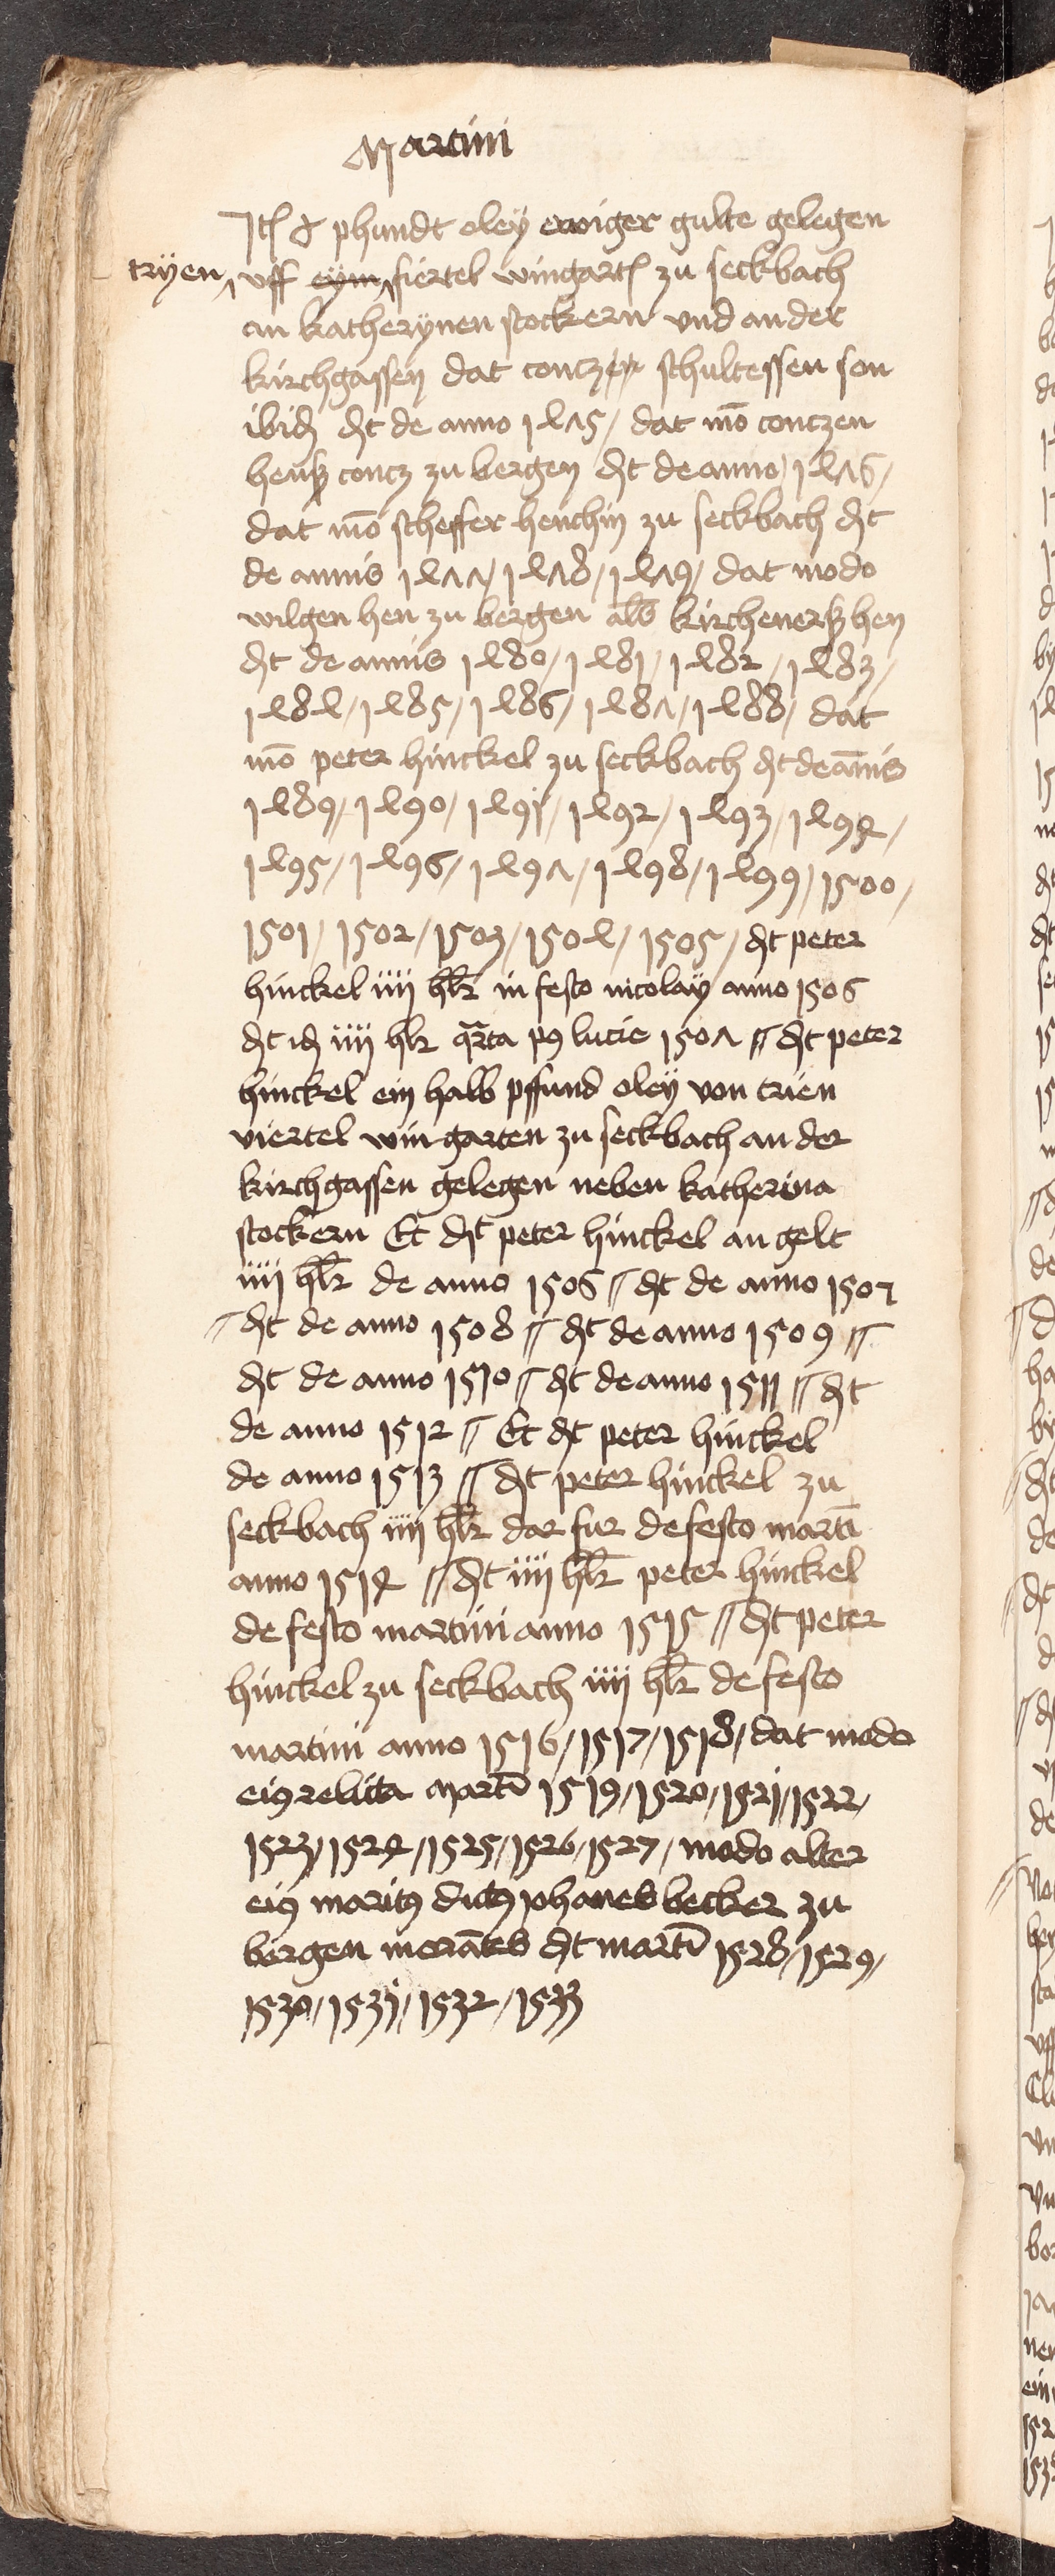 Martini
Itℓ phundt oley ewiger gulte gelegen
tryen uff eym fiertel wingartℓ zu seckbach
an katherynen stockern vnd an der
kirchgassen dat contzen schultessen son
ibid dt de anno 1475 / dat mo contzen
henß contz zu bergen dt de anno 1476 /
dat mo scheffer henchin zu seckbach dt
de annis 1477 / 1478 / 1479 / dat modo
wilgen hen zu bergen als kirchenerß hen
dt de annis 1480 / 1481 / 1482 / 1483 /
1484 / 1485 / 1486 / 1487 / 1488 / dat
mo peter hinckel zu seckbach dt de annis
1489 / 1490 / 1491 / 1492 / 1493 / 1494 /
1495 / 1496 / 1497 / 1498 / 1499 / 1500 /
1501 / 1502 / 1503 / 1504 / 1505 / dt peter
hinckel iiij hlr in festo nicolay anno 1506
dt id iiij hlr qrta p9 lucie 1507 // dt peter
hinckel ein halb pffund oley von trien
viertel wingarten zu seckbach an der
kirchgassen gelegen neben katherina
stockern Et dt peter hinckel an gelt
iiij hlr de anno 1506 // dt de anno 1507
// dt de anno 1508 // dt de anno 1509 //
dt de anno 1510 // dt de anno 1511 // dt
de anno 1512 // Et dt peter hinckel
de anno 1513 // dt peter hinckel zu
seckbach iiij hlr dar fur de festo marti
anno 1514 // dt iiij hlr peter hinckel
de festo martini anno 1515 // dt peter
hinckel zu seckbach iiij hlr de festo
martini anno 1516 / 1517 / 1518 / dat modo
ei9 relicta Marti 1519 / 1520 / 1521 / 1522 /
1523 / 1524 / 1525 / 1526 / 1527 / modo alter
ei9 marit9 dict9 johanes becker zu
bergen morates dt marti 1528 / 1529 /
1530 / 1531 / 1532 / 1533